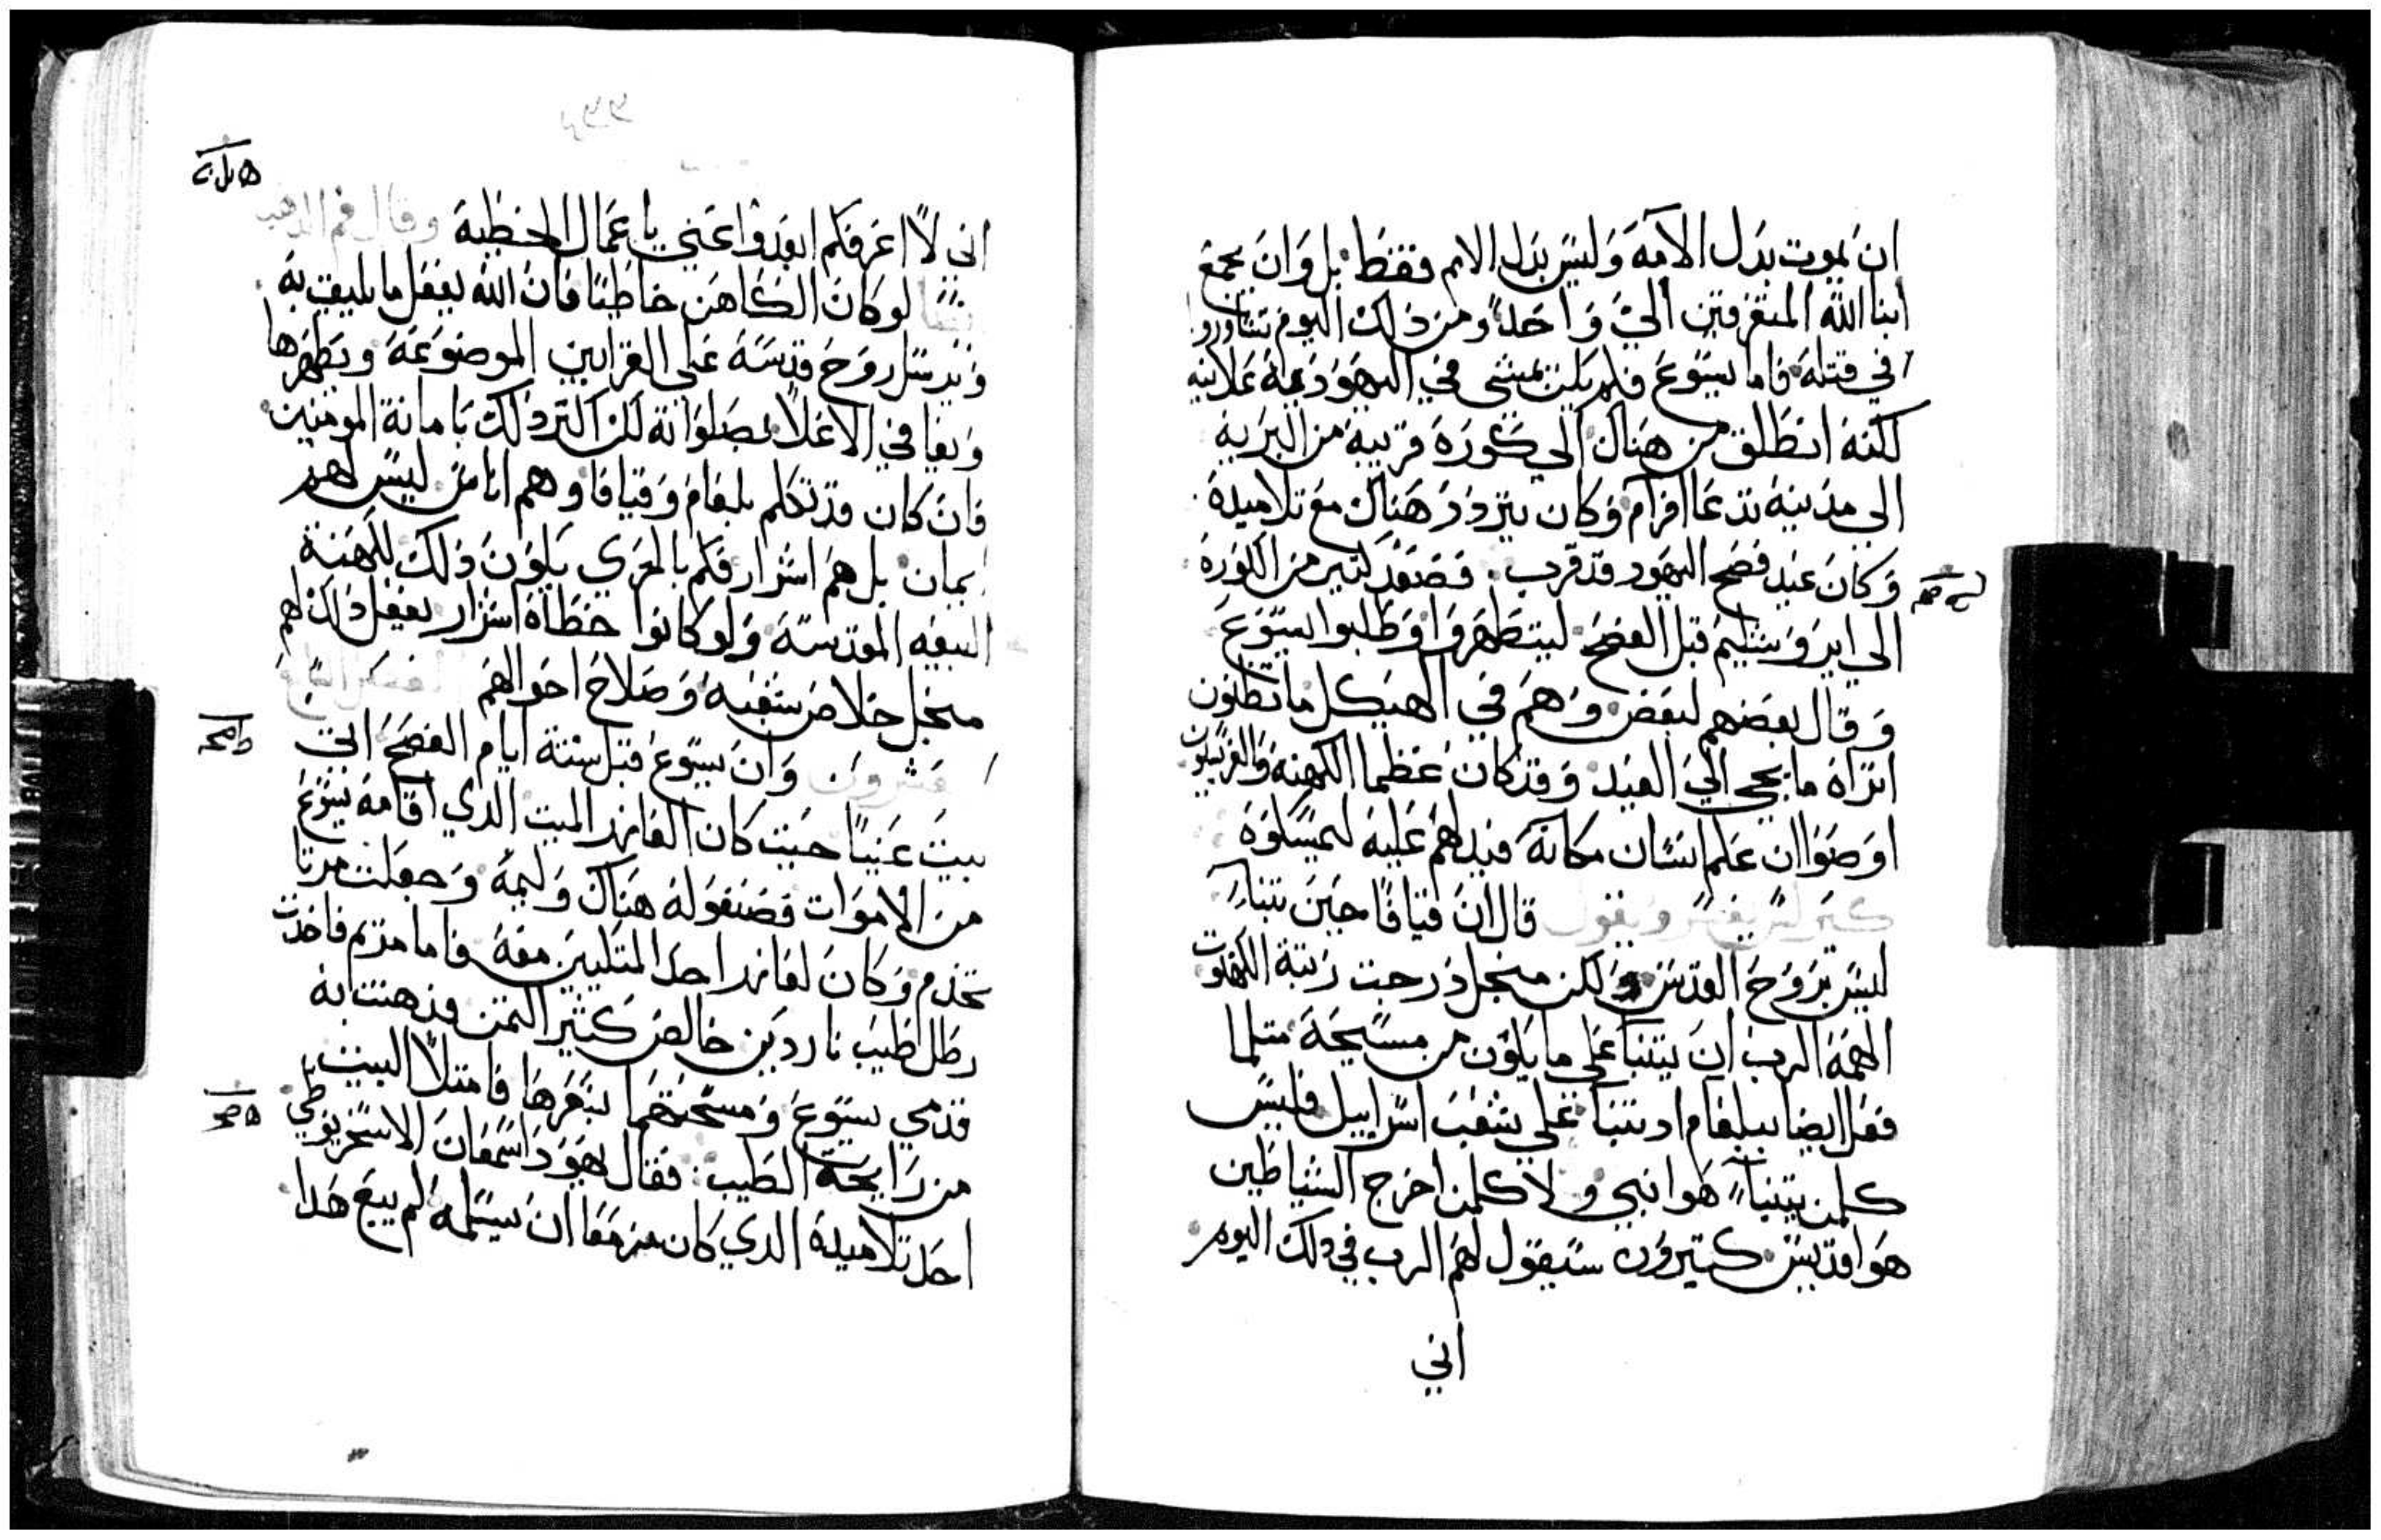 ان يموت بدل الامة وليس بدل الامم فقط بل وان يجمع
ابنا الله المتفرقين الي واحد ومن ذلك اليوم تشاوروا
في قتله فاما يسوع فلم يكن يمشي في اليهودية علانيه
لكنه انطلق من هناك الي كورة قريبة من البرية
الي مدينة تدعا افرام وكان يتردد هناك مع تلاميده
وكان عيد فصح اليهود قد قرب فصعد كتير من الكورة
الي ايروشليم قبل الفصح ليتطهروا وطلبوا يسوع
وقال بعضهم لبعض وهم في الهيكل ما تظنون
اتراه ما يجي الي العيد وقد كان عظما الكهنه والفريسيون
اوصوا ان علم انسان مكانه فيدلهم عليه ليمسكوه
كيرلس يفسر ويقول قال ان قيافا حين تنبا
ليس بروح القدس ولكن منجل درجت رتبة الكهنوت
الهمه الرب ان يتنبا علي ما يكون من مسيحه متلما
فعل ايضا ببلعام اد تنبا علي شعب اسراييل فليس
كلمن يتنبا هوا نبي ولا كلمن اخرج الشياطين
هوا قديس كتيرون سيقول لهم الرب في دلك اليوم
اني
اني لا اعرفكم ابعدوا عني يا عمال الخطية وقال فم الدهب
لو كان الكاهن خاطيا فان الله يفعل ما يليق به
ويرسل روح قدسه علي القرابين الموضوعة ويطهرها
في الاعلا بصلواته لكن اكتر دلك بامانة المومنين
فان كان قد تكلم بلعام وقيافا وهم اناس ليس لهم
ايمان بل هم اشرار فكم بالحري يكون ذلك لكهنة
البيعه المقدسة ولو كانوا خطاة اشرار يفعل دلك لهم
منجل خلاص شعبه وصلاح احوالهم
عشرون وان يسوع قبل ستة ايام الفصح اتي
بيت عنيا حيت كان العازر الميت الدي اقامه يسوع
من الاموات فصنعوا له هناك وليمة وجعلت مرتا
تخدم وكان لعازر احد المتكيين معه فاما مريم فاخدت
رطل طيب ناردين خالص كتير التمن ودهنت به
قدمي يسوع ومسحتهما بشعرها فامتلا البيت
من رايحة الطيب فقال يهودا سمعان الاسخريوطي
احد تلاميده الدي كان مزمعا ان يسلمه لم يبع هدا